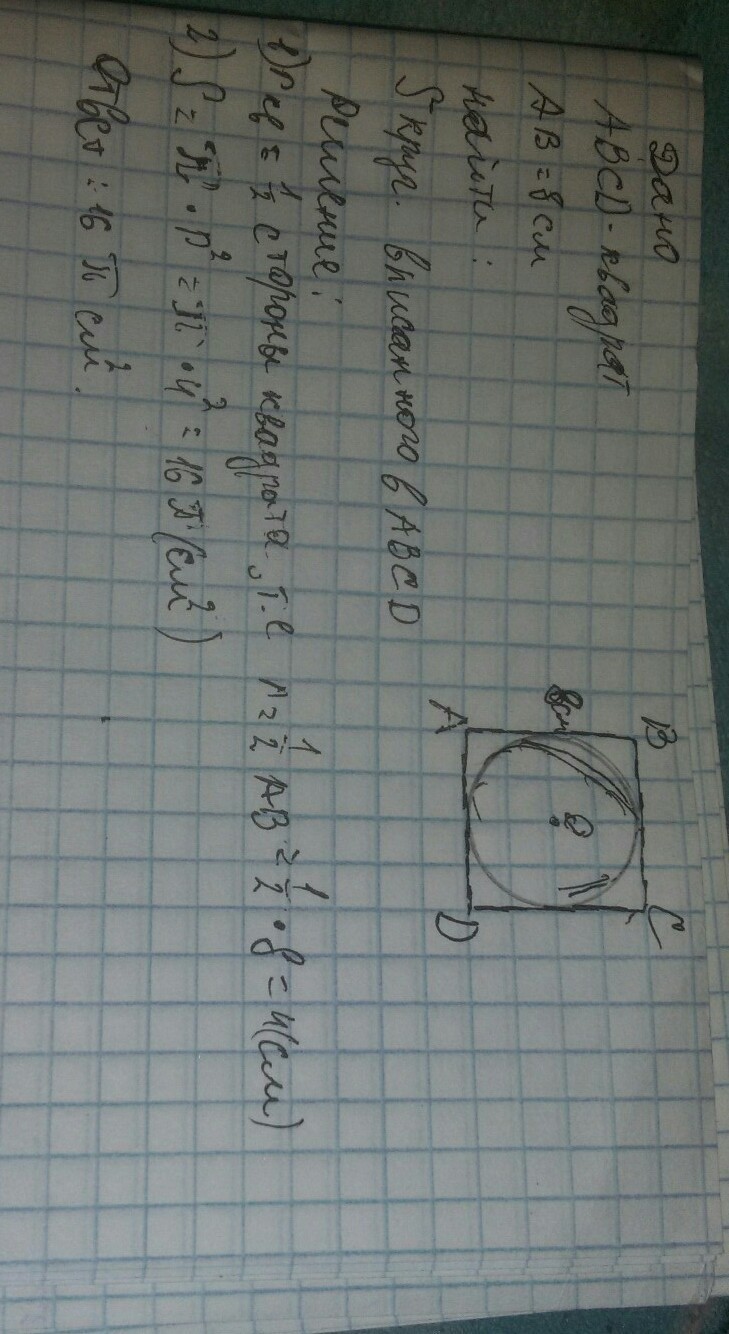 Дано
ABCD - квадрат
AB = 8 см
найти:
S круг. вписанного в ABCD
Решение:
1) r = 1/2 стороны квадрата, т.е r = 1/2 AB = 1/2 · 8 = 4 (см)
2) S = π · r² = π · 4² = 16 π (см²)
Ответ: 16 π см².
B
C
8см
O
A
D